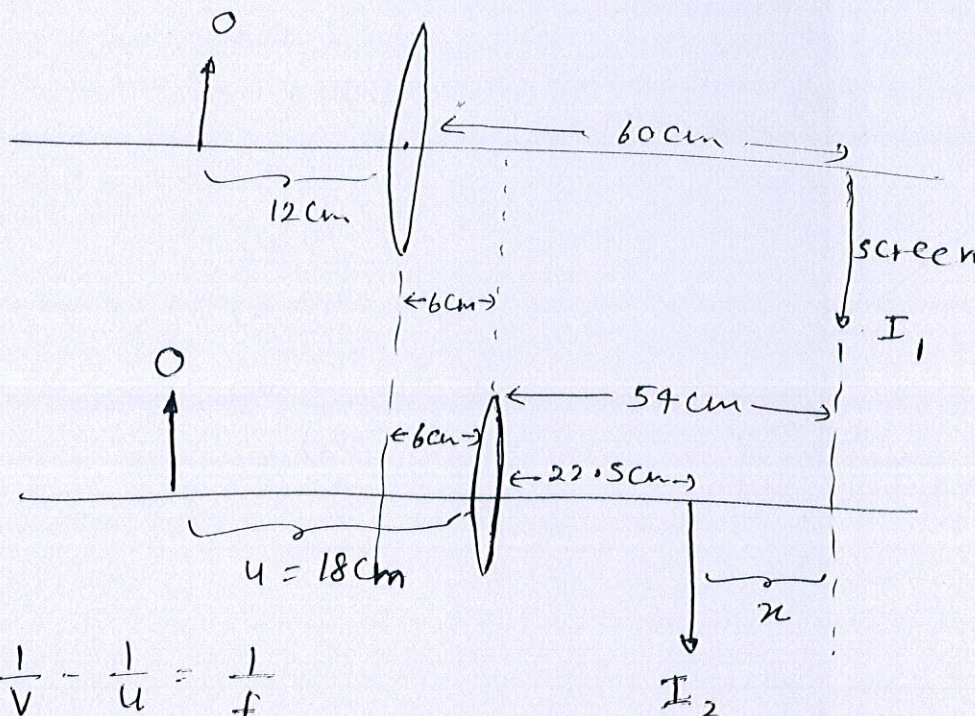 O
60 cm
12 cm
screen
←6cm→
I1
O
54 cm
←6cm→
←22.5cm→
u = 18 cm
x
1/V - 1/u = 1/f
I2